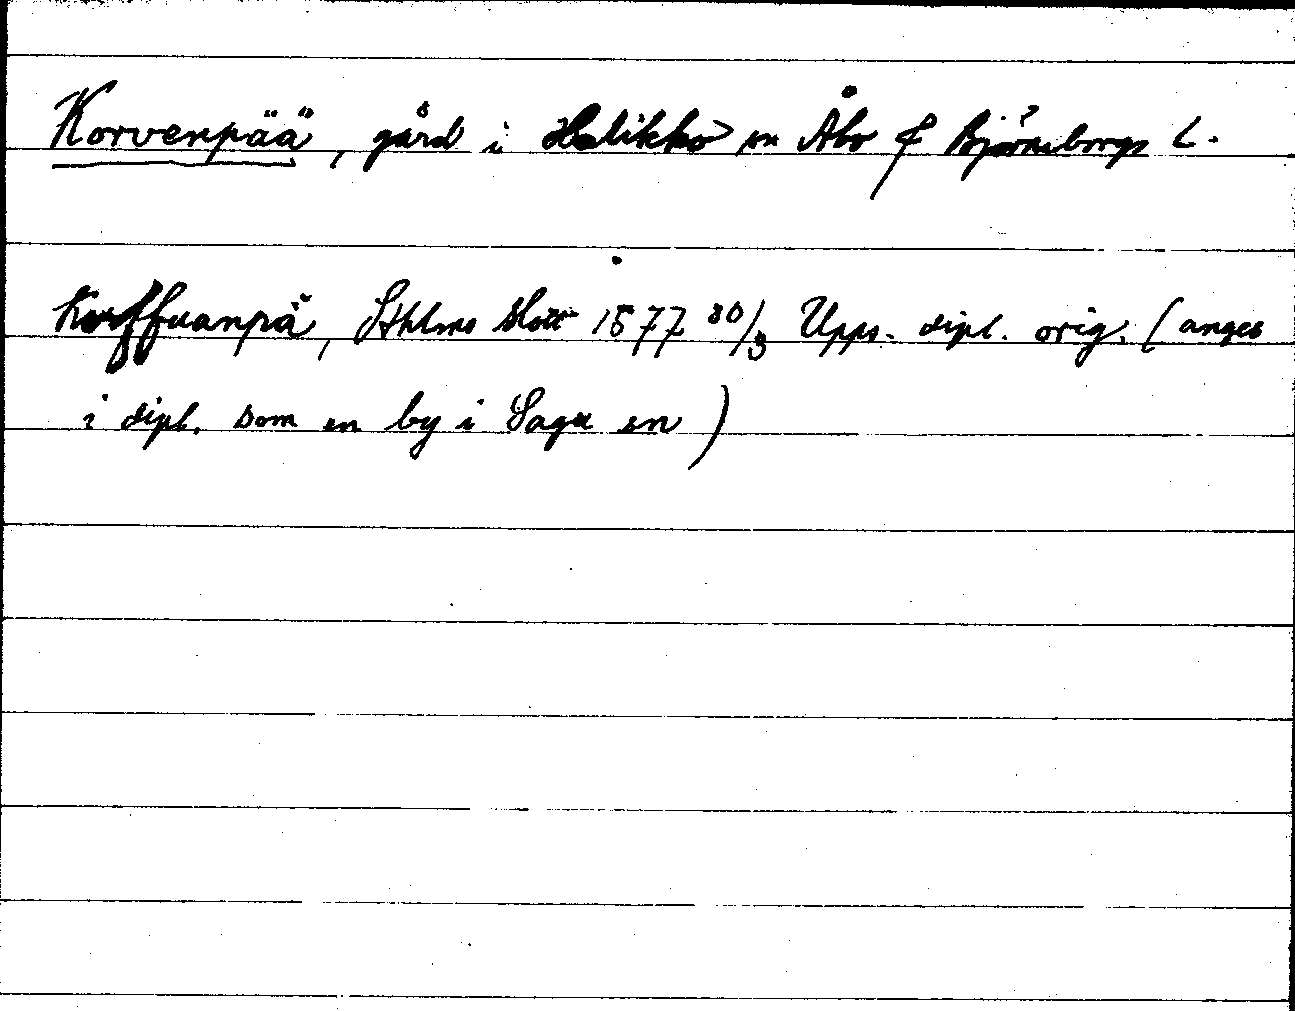 Korvenpää, gård i Halikko sn Åbo & Björneborgs L.
Korffuanpä, Sthlms slott 1577 30/3 Upps. dipl. orig. (anges
i dipl. som en by i Sagu sn)